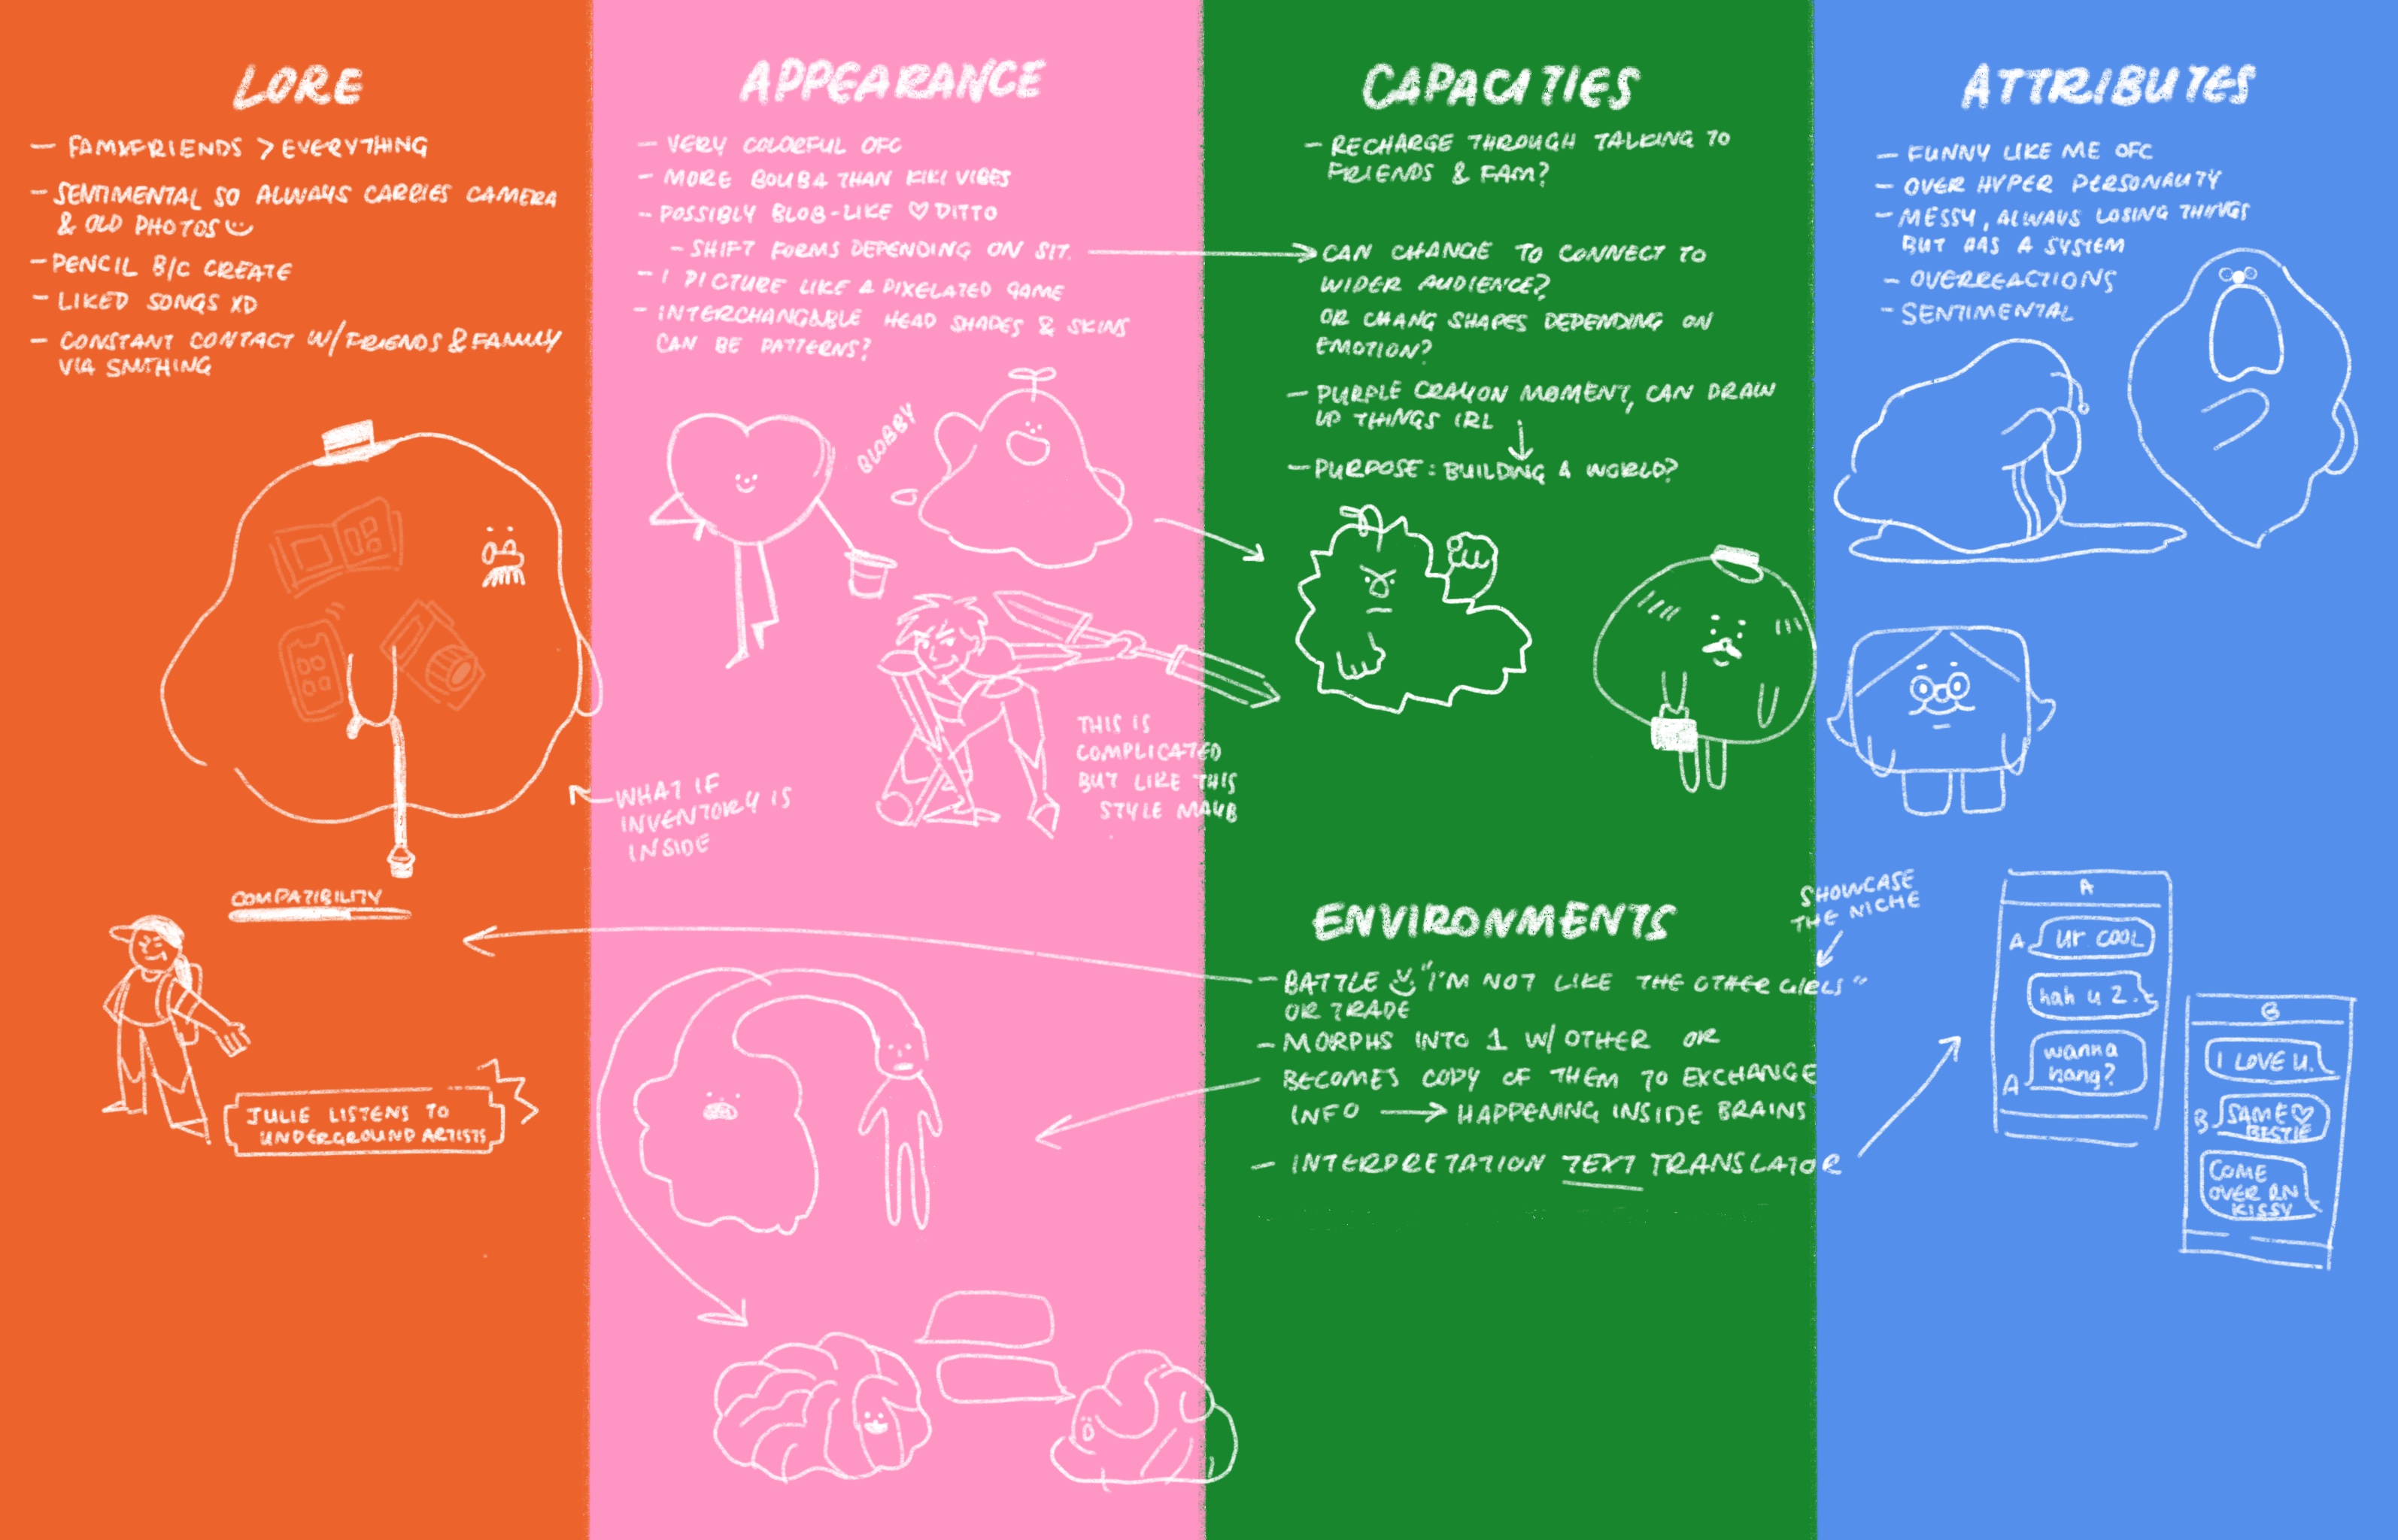 LORE
— FAM&FRIENDS > EVERYTHING
— SENTIMENTAL SO ALWAYS CARRIES CAMERA
& OLD PHOTOS
— PENCIL B/C CREATE
— LIKED SONGS XD
— CONSTANT CONTACT W/ FRIENDS & FAMILY
VIA SMTHING
COMPATIBILITY
JULIE LISTENS TO
UNDERGROUND ARTISTS
APPEARANCE
— VERY COLORFUL OFC
— MORE BOUBA THAN KIKI VIBES
— POSSIBLY BLOB-LIKE ♡ DITTO
— SHIFT FORMS DEPENDING ON SIT.
— I PICTURE LIKE A PIXELATED GAME
— INTERCHANGABLE HEAD SHAPES & SKINS
CAN BE PATTERNS?
BLOBBY
THIS IS
COMPLICATED
BUT LIKE THIS
STYLE MAYB
WHAT IF
INVENTORY IS
INSIDE
CAPACITIES
— RECHARGE THROUGH TALKING TO
FRIENDS & FAM?
CAN CHANGE TO CONNECT TO
WIDER AUDIENCE?
OR CHANG SHAPES DEPENDING ON
EMOTION?
— PURPLE CRAYON MOMENT, CAN DRAW
UP THINGS IRL
— PURPOSE: BUILDING A WORLD?
ENVIRONMENTS
— BATTLE "I'M NOT LIKE THE OTHER GIRLS"
OR TRADE
— MORPHS INTO 1 W/ OTHER OR
BECOMES COPY OF THEM TO EXCHANGE
INFO → HAPPENING INSIDE BRAINS
— INTERPRETATION TEXT TRANSLATOR
ATTRIBUTES
— FUNNY LIKE ME OFC
— OVER HYPER PERSONALITY
— MESSY, ALWAYS LOSING THINGS
BUT HAS A SYSTEM
— OVERREACTIONS
— SENTIMENTAL
SHOWCASE
THE NICHE
A
A ur COOL
hah u 2.
A wanna
hang?
B
I LOVE U.
B SAME ♡
BESTIE
COME
OVER RN
KISSY